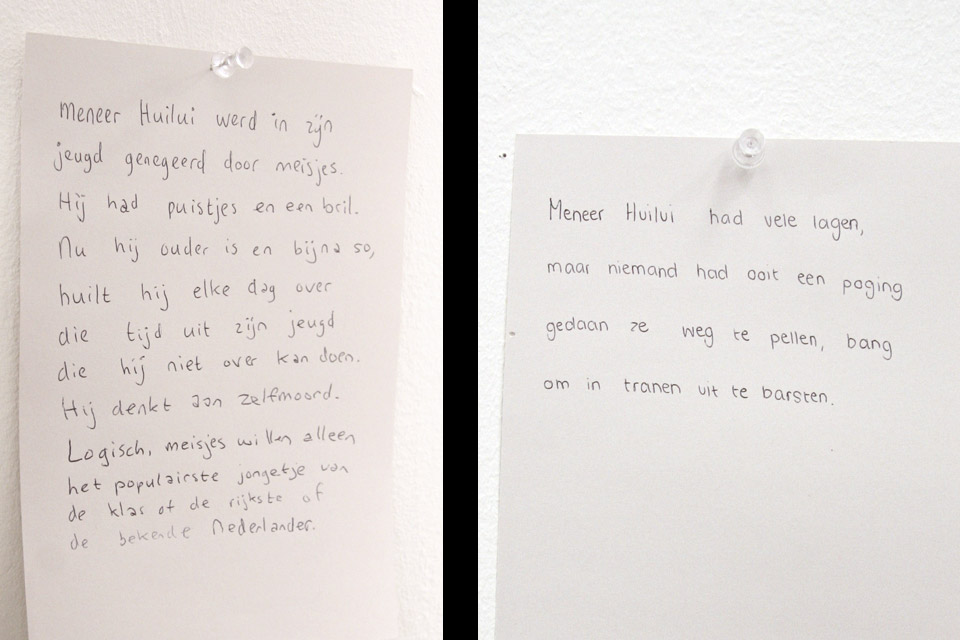 Meneer Huilui werd in zijn
jeugd genegeerd door meisjes.
Hij had puistjes en een bril.
Nu hij ouder is en bijna 50,
huilt hij elke dag over
die tijd uit zijn jeugd
die hij niet over kan doen.
Hij denkt aan zelfmoord.
Logisch, meisjes willen alleen
het populairste jongetje van
de klas of de rijkste of
de bekende Nederlander.
Meneer Huilui had vele lagen,
maar niemand had ooit een poging
gedaan ze weg te pellen, bang
om in tranen uit te barsten.